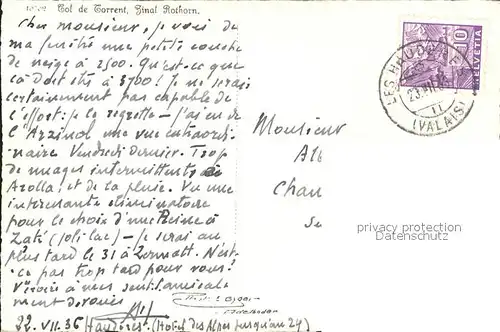 Col de Torrent, Zinal Rothorn.
Cher monsieur, je vois de
ma fenêtre une petite couche
de neige à 2500. Qu'est-ce que
ça doit être à 3700! Je ne serai
certainement pas capable de
l'effort: je le regrette - j'ai eu de
l'Arzinol une vue extraordi-
naire Vendredi dernier. Trop
de nuages intermittents
Arolla, et de la pluie. Vu une
intéressante éliminatoire
pour le choix d'une Reine à
Zaté (joli lac) - Je serai au
plus tard le 31 à Zermatt. N'est-
ce pas trop tard pour vous?
sentimentale-
ment dévoués
22.VII.36 Haudères. (Hotel des Alpes jusqu'au 24)
Monsieur
Chan
HELVETIA
10
LES HAUDÈRES
23.VII.
(VALAIS)
privacy protection
Datenschutz